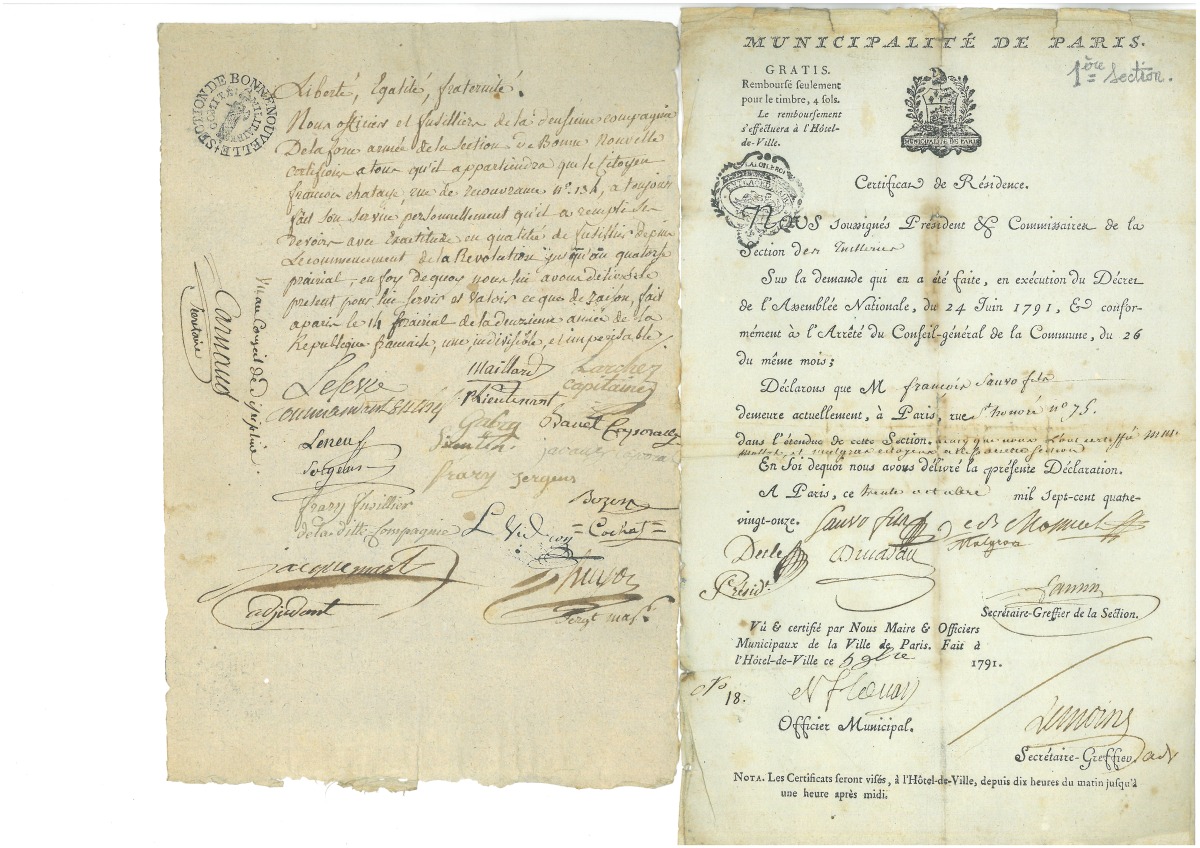 SECTION DE BONNE NOUVELLE
COMITÉ MILITAIRE
Liberté, Egalité, fraternité.
Nous officiers et fusilliers de la deusieme compagnie
De la force armée de la Section de Bonne Nouvelle
certifions a tous qu'il appartiendra que le Citoyen
francois chataise, rue de recouvrance n° 134, a toujours
fait son service personnellement qu'il a rempli ses
Devoirs avec Exactitude en qualité de fusillier depuis
Le commencement de la Revolution jusqu'au quatorze
prairial, en foy de quoy nous lui avons délivré le
present pour lui servir et valoir ce que de raison, fait
a paris le 14 prairial de la deuzieme année de la
Republique francaise, une indivisible, et impérissable.
Vu au Conseil de Discipline
Carnaud
Secretaire
Lefevre
commandant en
Maillard
Lieutenant
Larcher
capitaine
Leneuf
Sergent
Bauel Corporalle
frary Sergent
frary fusillier
de la ditte Compagnie
Bozon
=Cochet=
jacquemart
adjudant
Serg.t maj.r
MUNICIPALITÉ DE PARIS.
1ère Section.
GRATIS.
Remboursé seulement
pour le timbre, 4 sols.
Le remboursement
s'effectuera à l'Hôtel-
de-Ville.
MUNICIPALITÉ DE PARIS
LA LOI ET LE ROI
Certificat de Résidence.
NOUS soussignés Président & Commissaires de la
Section des Tuilleries
Sur la demande qui en a été faite, en exécution du Décret
de l'Assemblée Nationale, du 24 Juin 1791, & confor-
mément à l'Arrêté du Conseil-général de la Commune, du 26
du même mois;
Déclarons que M françois Sauvo fils
demeure actuellement, à Paris, rue St honoré n° 75.
dans l'étendue de cette Section. ainsi que nous l'ont certiffié MM.
Mallet, et malgras citoyens de cette Section
En foi dequoi nous avons délivré la présente Déclaration.
A Paris, ce trente octobre mil sept-cent quatre-
vingt-onze. Sauvo fils
Malgras
Decle
Présid.t
Secrétaire-Greffier de la Section.
Vû & certifié par Nous Maire & Officiers
Municipaux de la Ville de Paris. Fait à
l'Hôtel-de-Ville ce 5 9bre 1791.
N° 18.
Officier Municipal.
Lemoine
Secrétaire-Greffier adj
NOTA. Les Certificats seront visés, à l'Hôtel-de-Ville, depuis dix heures du matin jusqu'à
une heure après midi.